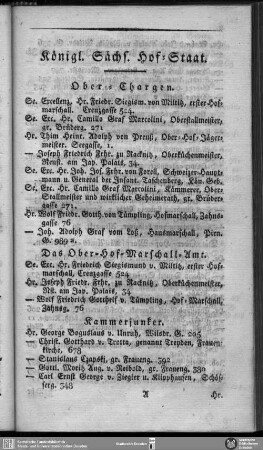 Königl. Sächs. Hof-Staat.
Ober-Chargen.
Se. Excellenz, Hr. Friedr. Siegism. von Miltitz, erster Hof-
marschall. Creuzgasse 524
Se. Exc. Hr. Camillo Graf Marcolini, Oberstallmeister,
gr. Brüderg. 271
Hr. Thim Heinr. Adolph von Preuß, Ober-Hof-Jäger-
meister. Seegasse, 1
— Joseph Friedrich Frhr. zu Racknitz, Oberküchenmeister,
Neust. am Jap. Palais, 34.
Se. Exc. Hr. Joh. Jos. Frhr. von Forell, Schweizer-Haupt-
mann u. General der Infant. Taschenberg,
Se. Exc. Hr. Camillo Graf Marcolini, Kämmerer, Ober-
Stallmeister und wirklicher Geheimerath, gr. Brüder-
gasse 271.
Hr. Wolf Friedr. Gotth. von Tümpling, Hofmarschall, Zahns-
gasse 76
— Joh. Adolph Graf vom Loß, Hausmarschall, Pirn.
G. 989
Das Ober-Hof-Marschall-Amt.
Se. Exc. Hr. Friedrich Siegesmund v. Miltitz, erster Hof-
marschall, Creuzgasse 524
Hr. Joseph Friedr. Frhr. zu Racknitz, Oberküchenmeister,
Nst. am Jap. Palais, 34
— Wolf Friedrich Gotthelf v. Tümpling, Hof-Marschall,
Zahnsg. 76
Kammerjunker.
Hr. George Boguslaus v. Unruh, Wilsdr. G. 205
— Christ. Gotthard v. Trotta, genannt Treyden, Frauen-
kirche, 678
— Stanislaus Czapski, gr. Fraueng. 392
— Gottl. Moritz Aug. v. Nebold, gr. Fraueng. 380
— Carl Ernst George v. Ziegler u. Klipphausen, Schös-
serg. 348
A
Hr.